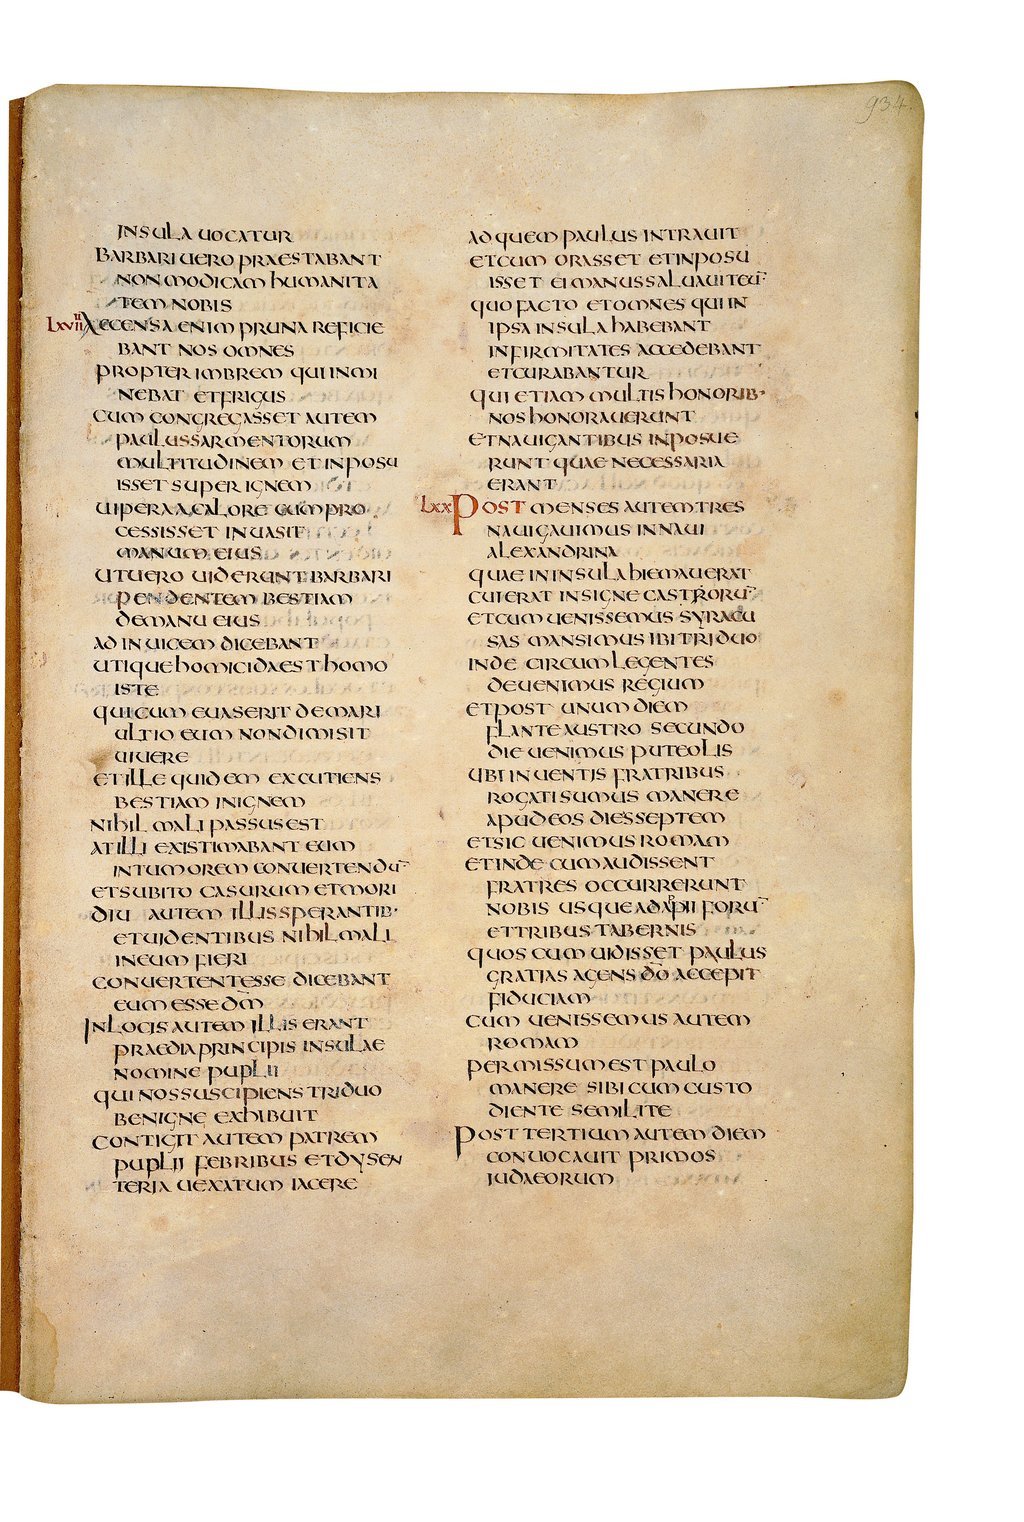 934.
INSULA UOCATUR
BARBARI UERO PRAESTABANT
NON MODICAM HUMANITA
TEM NOBIS
LXVIIII ACCENSA ENIM PRUNA REFICIE
BANT NOS OMNES
PROPTER IMBREM QUI INMI
NEBAT ET FRIGUS
CUM CONGREGASSET AUTEM
PAULUS SARMENTORUM
MULTITUDINEM ET INPOSU
ISSET SUPER IGNEM
UIPERA A CALORE CUM PRO
CESSISSET INUASIT
MANUM EIUS
UT UERO UIDERUNT BARBARI
PENDENTEM BESTIAM
DE MANU EIUS
AD INUICEM DICEBANT
UTIQUE HOMICIDA EST HOMO
ISTE
QUI CUM EUASERIT DE MARI
ULTIO EUM NON DIMISIT
UIUERE
ET ILLE QUIDEM EXCUTIENS
BESTIAM IN IGNEM
NIHIL MALI PASSUS EST
AT ILLI EXISTIMABANT EUM
IN TUMOREM CONUERTENDŪ
ET SUBITO CASURUM ET MORI
DIU AUTEM ILLIS SPERANTIB·
ET UIDENTIBUS NIHIL MALI
IN EUM FIERI
CONUERTENTES SE DICEBANT
EUM ESSE DM̄
IN LOCIS AUTEM ILLIS ERANT
PRAEDIA PRINCIPIS INSULAE
NOMINE PUPLII
QUI NOS SUSCIPIENS TRIDUO
BENIGNE EXHIBUIT
CONTIGIT AUTEM PATREM
PUPLII FEBRIBUS ET DYSEN
TERIA UEXATUM IACERE
AD QUEM PAULUS INTRAUIT
ET CUM ORASSET ET INPOSU
ISSET EI MANUS SALUAUIT EŪ
QUO FACTO ET OMNES QUI IN
IPSA INSULA HABEBANT
INFIRMITATES ACCEDEBANT
ET CURABANTUR
QUI ETIAM MULTIS HONORIB·
NOS HONORAUERUNT
ET NAUIGANTIBUS INPOSUE
RUNT QUAE NECESSARIA
ERANT
LXX POST MENSES AUTEM TRES
NAUIGAUIMUS IN NAUI
ALEXANDRINA
QUAE IN INSULA HIEMAUERAT
CUI ERAT INSIGNE CASTRORŪ
ET CUM UENISSEMUS SYRACU
SAS MANSIMUS IBI TRIDUO
INDE CIRCUMLEGENTES
DEUENIMUS REGIUM
ET POST UNUM DIEM
FLANTE AUSTRO SECUNDO
DIE UENIMUS PUTEOLIS
UBI INUENTIS FRATRIBUS
ROGATI SUMUS MANERE
APUD EOS DIES SEPTEM
ET SIC UENIMUS ROMAM
ET INDE CUM AUDISSENT
FRATRES OCCURRERUNT
NOBIS USQUE AD APPII FORŪ
ET TRIBUS TABERNIS
QUOS CUM UIDISSET PAULUS
GRATIAS AGENS DŌ ACCEPIT
FIDUCIAM
CUM UENISSEMUS AUTEM
ROMAM
PERMISSUM EST PAULO
MANERE SIBI CUM CUSTO
DIENTE SE MILITE
POST TERTIUM AUTEM DIEM
CONUOCAUIT PRIMOS
IUDAEORUM